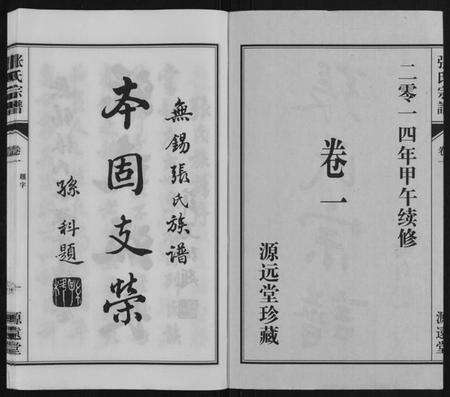 张氏宗譜
卷一
二零一四年甲午续修
卷一
源远堂珍藏
源远堂
無錫張氏族譜
本固支榮
孫科題
张氏宗譜
卷一
題字
源遠堂